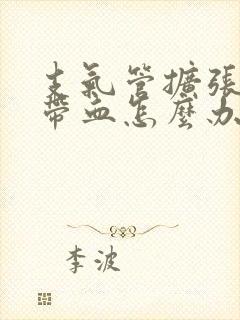 支氣管擴張
帶血怎麼办
李波